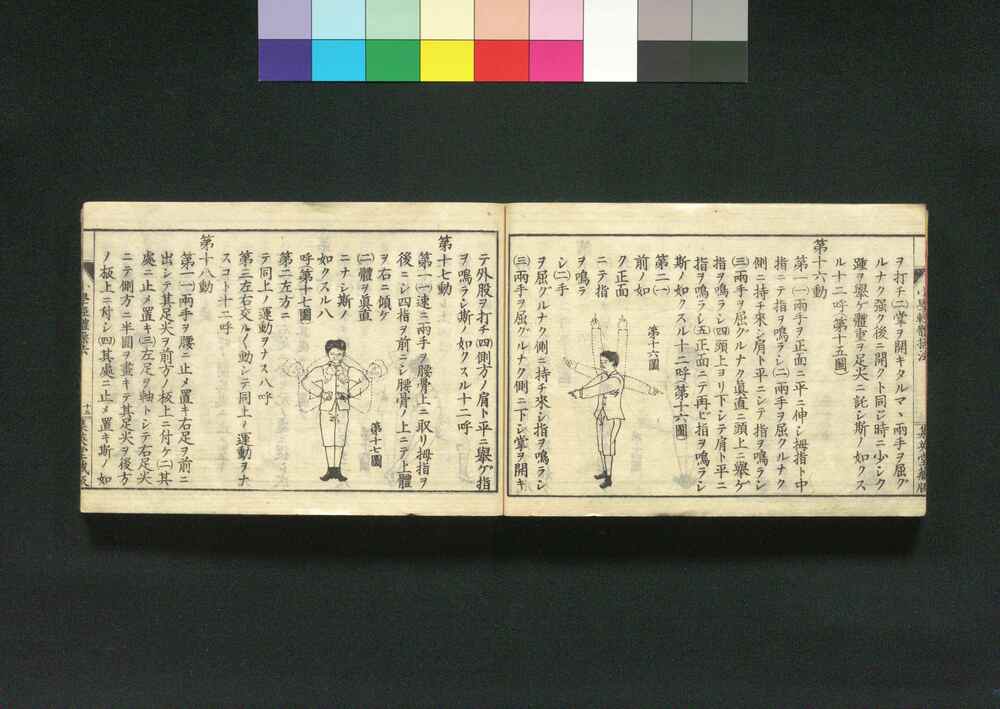 ヲ打チ(二)掌ヲ開キタルマヽ兩手ヲ屈グ
ルナク强ク後ニ開クト同ジ時ニ少シク
踵ヲ擧ゲ體重ヲ足尖ニ託シ斯ノ如クス
ル十二呼(第十五圖)
第十六動
第一(一)兩手ヲ正面ニ平ニ伸シ拇指ト中
指ニテ指ヲ鳴ラシ(二)兩手ヲ屈クルナク
側ニ持チ來シ肩ト平ニシテ指ヲ鳴ラシ
(三)兩手ヲ屈グルナク眞直ニ頭上ニ擧ゲ
指ヲ鳴ラシ(四)頭上ヨリ下シテ肩ト平ニ
指ヲ鳴ラシ(五)正面ニテ再ビ指ヲ鳴ラシ
斯ノ如クスル十二呼(第十六圖)
第二(一)
前ノ如
ク正面
ニテ指
ヲ鳴ラ
シ(二)手
第十六圖
ヲ屈グルナク側ニ持チ來シ指ヲ鳴ラシ
(三)兩手ヲ屈グルナク側ニ下シ掌ヲ開キ
テ外股ヲ打チ(四)側方ノ肩ト平ニ擧ゲ指
ヲ鳴ラシ斯ノ如クスル十二呼
第十七動
第一(一)速ニ兩手ヲ腰骨上ニ取リ拇指ヲ
後ニシ四指ヲ前ニシ腰骨ノ上ニテ上體
ヲ右ニ傾ケ
(二)體ヲ眞直
ニナシ斯ノ
如クスル八
呼(第十七圖)
第二左方ニ
第十七圖
テ同上ノ運動ヲナス八呼
第三左右交ル〱動シテ同上ノ運動ヲナ
スコト十二呼
第十八動
第一(一)兩手ヲ腰ニ止メ置キ右足ヲ前ニ
出シテ其足尖ヲ前方ノ板上ニ付ケ(二)其
處ニ止メ置キ(三)左足ヲ軸トシテ右足尖
ニテ側方ニ半圓ヲ畫キテ其足尖ヲ後方
ノ板上ニ付シ(四)其處ニ止メ置キ斯ノ如